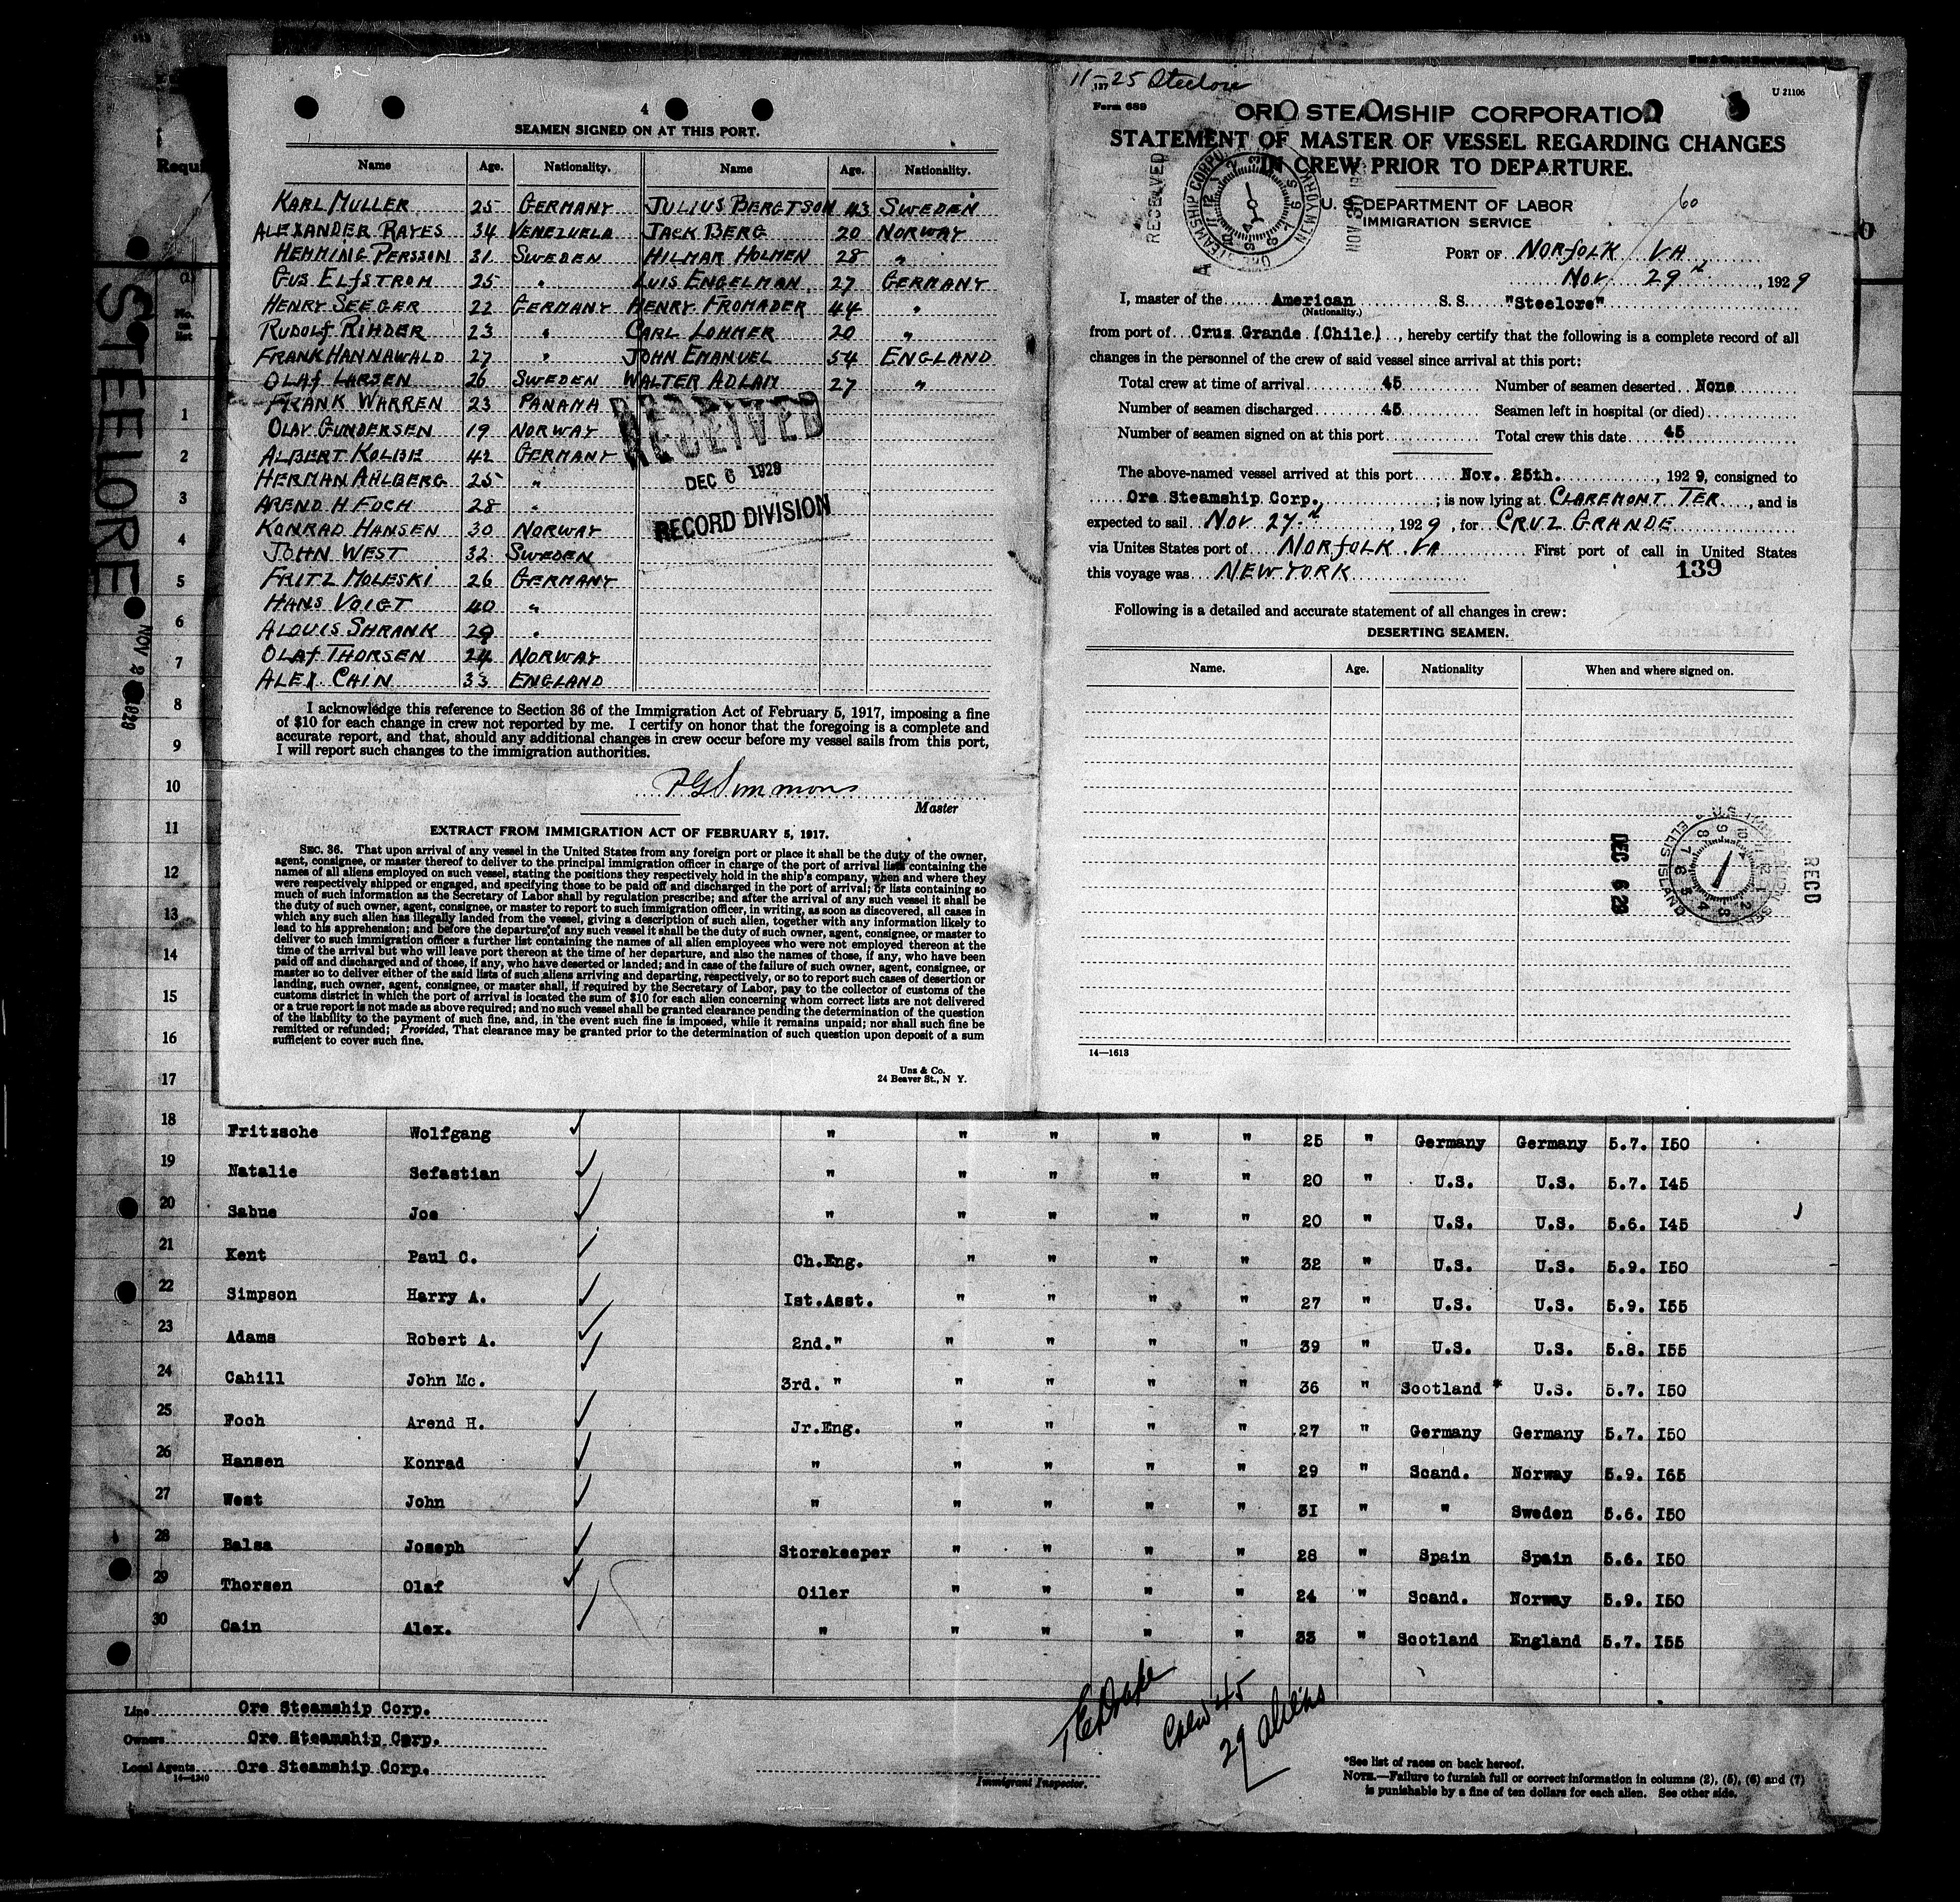 4
SEAMEN SIGNED ON AT THIS PORT.
Name Age. Nationality. Name Age. Nationality.
KARL MULLER 25 GERMANY JULIUS BERGTSON 43 SWEDEN
ALEXANDER RAYES 34 VENEZUELA JACK BERG 20 NORWAY
HEMMING PERSSON 31 SWEDEN HILMAR HOLMEN 28 "
GUS ELFSTROM 25 " LUIS ENGELMAN 27 GERMANY
HENRY SEEGER 22 GERMANY HENRY FROMADER 44 "
RUDOLF RIHDER 23 " CARL LOHMER 20 "
FRANK HANNAWALD 27 " JOHN EMANUEL 54 ENGLAND
OLAF LARSEN 26 SWEDEN WALTER ADLAM 27 "
FRANK WARREN 23 PANAMA
OLAV GUNDERSEN 19 NORWAY
ALBERT KOLBE 42 GERMANY
HERMAN AHLBERG 25 "
AREND H. FOCH 28 "
KONRAD HANSEN 30 NORWAY
JOHN WEST 32 SWEDEN
FRITZ MOLESKI 26 GERMANY
HANS VOIGT 40 "
ALOUIS SHRANK 29 "
OLAF THORSEN 24 NORWAY
ALEX. CAIN 33 ENGLAND
RECEIVED
DEC 6 1929
RECORD DIVISION
I acknowledge this reference to Section 36 of the Immigration Act of February 5, 1917, imposing a fine
of $10 for each change in crew not reported by me. I certify on honor that the foregoing is a complete and
accurate report, and that, should any additional changes in crew occur before my vessel sails from this port,
I will report such changes to the immigration authorities.
Simmons
Master
EXTRACT FROM IMMIGRATION ACT OF FEBRUARY 5, 1917.
SEC. 36. That upon arrival of any vessel in the United States from any foreign port or place it shall be the duty of the owner,
agent, consignee, or master thereof to deliver to the principal immigration officer in charge of the port of arrival lists containing the
names of all aliens employed on such vessel, stating the positions they respectively hold in the ship's company, when and where they
were respectively shipped or engaged, and specifying those to be paid off and discharged in the port of arrival; or lists containing so
much of such information as the Secretary of Labor shall by regulation prescribe; and after the arrival of any such vessel it shall be
the duty of such owner, agent, consignee, or master to report to such immigration officer, in writing, as soon as discovered, all cases in
which any such alien has illegally landed from the vessel, giving a description of such alien, together with any information likely to
lead to his apprehension; and before the departure of any such vessel it shall be the duty of such owner, agent, consignee, or master to
deliver to such immigration officer a further list containing the names of all alien employees who were not employed thereon at the
time of the arrival but who will leave port thereon at the time of her departure, and also the names of those, if any, who have been
paid off and discharged and of those, if any, who have deserted or landed; and in case of the failure of such owner, agent, consignee, or
master so to deliver either of the said lists of such aliens arriving and departing, respectively, or so to report such cases of desertion or
landing, such owner, agent, consignee, or master shall, if required by the Secretary of Labor, pay to the collector of customs of the
customs district in which the port of arrival is located the sum of $10 for each alien concerning whom correct lists are not delivered
or a true report is not made as above required; and no such vessel shall be granted clearance pending the determination of the question
of the liability to the payment of such fine, and, in the event such fine is imposed, while it remains unpaid; nor shall such fine be
remitted or refunded; Provided, That clearance may be granted prior to the determination of such question upon deposit of a sum
sufficient to cover such fine.
Uns & Co.
24 Beaver St., N Y.
11-25 Steelore
137
Form 689
U 21106
ORE STEAMSHIP CORPORATION
STATEMENT OF MASTER OF VESSEL REGARDING CHANGES
IN CREW PRIOR TO DEPARTURE.
U. S. DEPARTMENT OF LABOR
IMMIGRATION SERVICE
RECEIVED
NOV 30
60
PORT OF NORFOLK VA
NOV 29th, 1929
I, master of the American S. S. "Steelore"
(Nationality.)
from port of Cruz Grande (Chile), hereby certify that the following is a complete record of all
changes in the personnel of the crew of said vessel since arrival at this port:
Total crew at time of arrival 45 Number of seamen deserted None
Number of seamen discharged 45 Seamen left in hospital (or died)
Number of seamen signed on at this port Total crew this date 45
The above-named vessel arrived at this port Nov. 25th. , 1929, consigned to
Ore Steamship Corp. ; is now lying at CLAREMONT TER. , and is
expected to sail NOV 27th , 1929, for CRUZ GRANDE
via Unites States port of NORFOLK VA First port of call in United States
this voyage was NEW YORK
139
Following is a detailed and accurate statement of all changes in crew:
DESERTING SEAMEN.
Name. Age. Nationality When and where signed on.
DEC 6 29
ELLIS ISLAND
RECD
14—1613
Requi
STEELORE
No. on list
1
2
3
4
5
6
7
8
9
10
11
12
13
14
15
16
17
18 Fritzsche Wolfgang " " " " " 25 " Germany Germany 5.7. I50
19 Natalie Sefastian " " " " " 20 " U.S. U.S. 5.7. I45
20 Sabue Joe " " " " " 20 " U.S. U.S. 5.6. I45
21 Kent Paul C. Ch.Eng. " " " " 32 " U.S. U.S. 5.9. I50
22 Simpson Harry A. Ist.Asst. " " " " 27 " U.S. U.S. 5.9. I55
23 Adams Robert A. 2nd." " " " " 39 " U.S. U.S. 5.8. I55
24 Cahill John Mc. 3rd. " " " " " 36 " Scotland * U.S. 5.7. I50
25 Foch Arend H. Jr.Eng. " " " " 27 " Germany Germany 5.7. I50
26 Hansen Konrad " " " " " 29 " Scand. Norway 5.9. I65
27 West John " " " " " 31 " " Sweden 5.6. I50
28 Balsa Joseph Storekeeper " " " " 28 " Spain Spain 5.6. I50
29 Thorsen Olaf Oiler " " " " 24 " Scand. Norway 5.9. I50
30 Cain Alex. " " " " " 33 " Scotland England 5.7. I55
Line Ore Steamship Corp.
Owners Ore Steamship Corp.
Local Agents Ore Steamship Corp.
14—1240
Crew 45
29 aliens
Immigrant Inspector.
*See list of races on back hereof.
NOTE.—Failure to furnish full or correct information in columns (2), (5), (6) and (7)
is punishable by a fine of ten dollars for each alien. See other side.